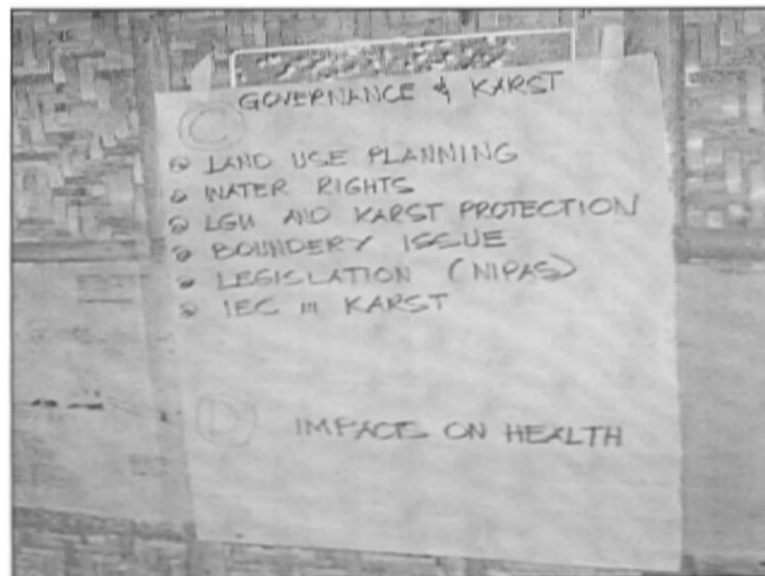 GOVERNANCE & KARST
C
LAND USE PLANNING
WATER RIGHTS
LGU AND KARST PROTECTION
BOUNDERY ISSUE
LEGISLATION (NIPAS)
IEC in KARST
D IMPACTS ON HEALTH